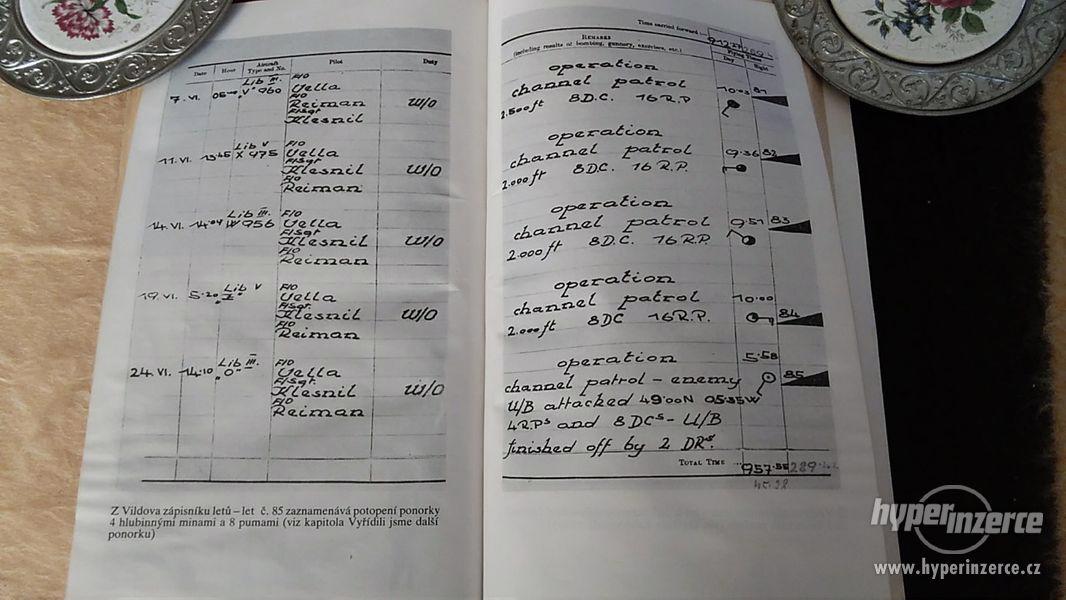 Date Hour Aircraft Type and No. Pilot Duty
7. VI. Lib III. "V" 960 F/O Vella
F/O Reiman W/O
F/Sgt Klesnil
11. VI. 1345 Lib V X 975 F/O Vella
F/Sgt Klesnil W/O
F/O Reiman
14. VI. 14.04 Lib III. 956 F/O Vella
F/Sgt Klesnil W/O
F/O Reiman
19. VI. 5.20 Lib V F/O Vella
F/Sgt Klesnil W/O
F/O Reiman
24. VI. 14.10 Lib III. "O" F/O Vella
F/Sgt Klesnil W/O
F/O Reiman
Z Vildova zápisníku letů – let č. 85 zaznamenává potopení ponorky
4 hlubinnými minami a 8 pumami (viz kapitola Vyřídili jsme další
ponorku)
Time carried forward
Remarks
(including results of bombing, gunnery, exercises, etc.)
Flying Times
Day Night
operation
channel patrol 10.03 81
2.500ft 8D.C. 16R.P
operation
channel patrol 9.36 82
2.000ft 8D.C. 16R.P.
operation
channel patrol 9.51 83
2.000ft 8D.C. 16R.P.
operation
channel patrol 10.00
2.000ft 8DC 16R.P. 84
operation 5.58
channel patrol – enemy 85
U/B attacked 49°00N 05.35W
4R.Ps and 8DCs – U/B
finished off by 2 DRs.
Total Time 957.55
hyperinzerce
www.hyperinzerce.cz